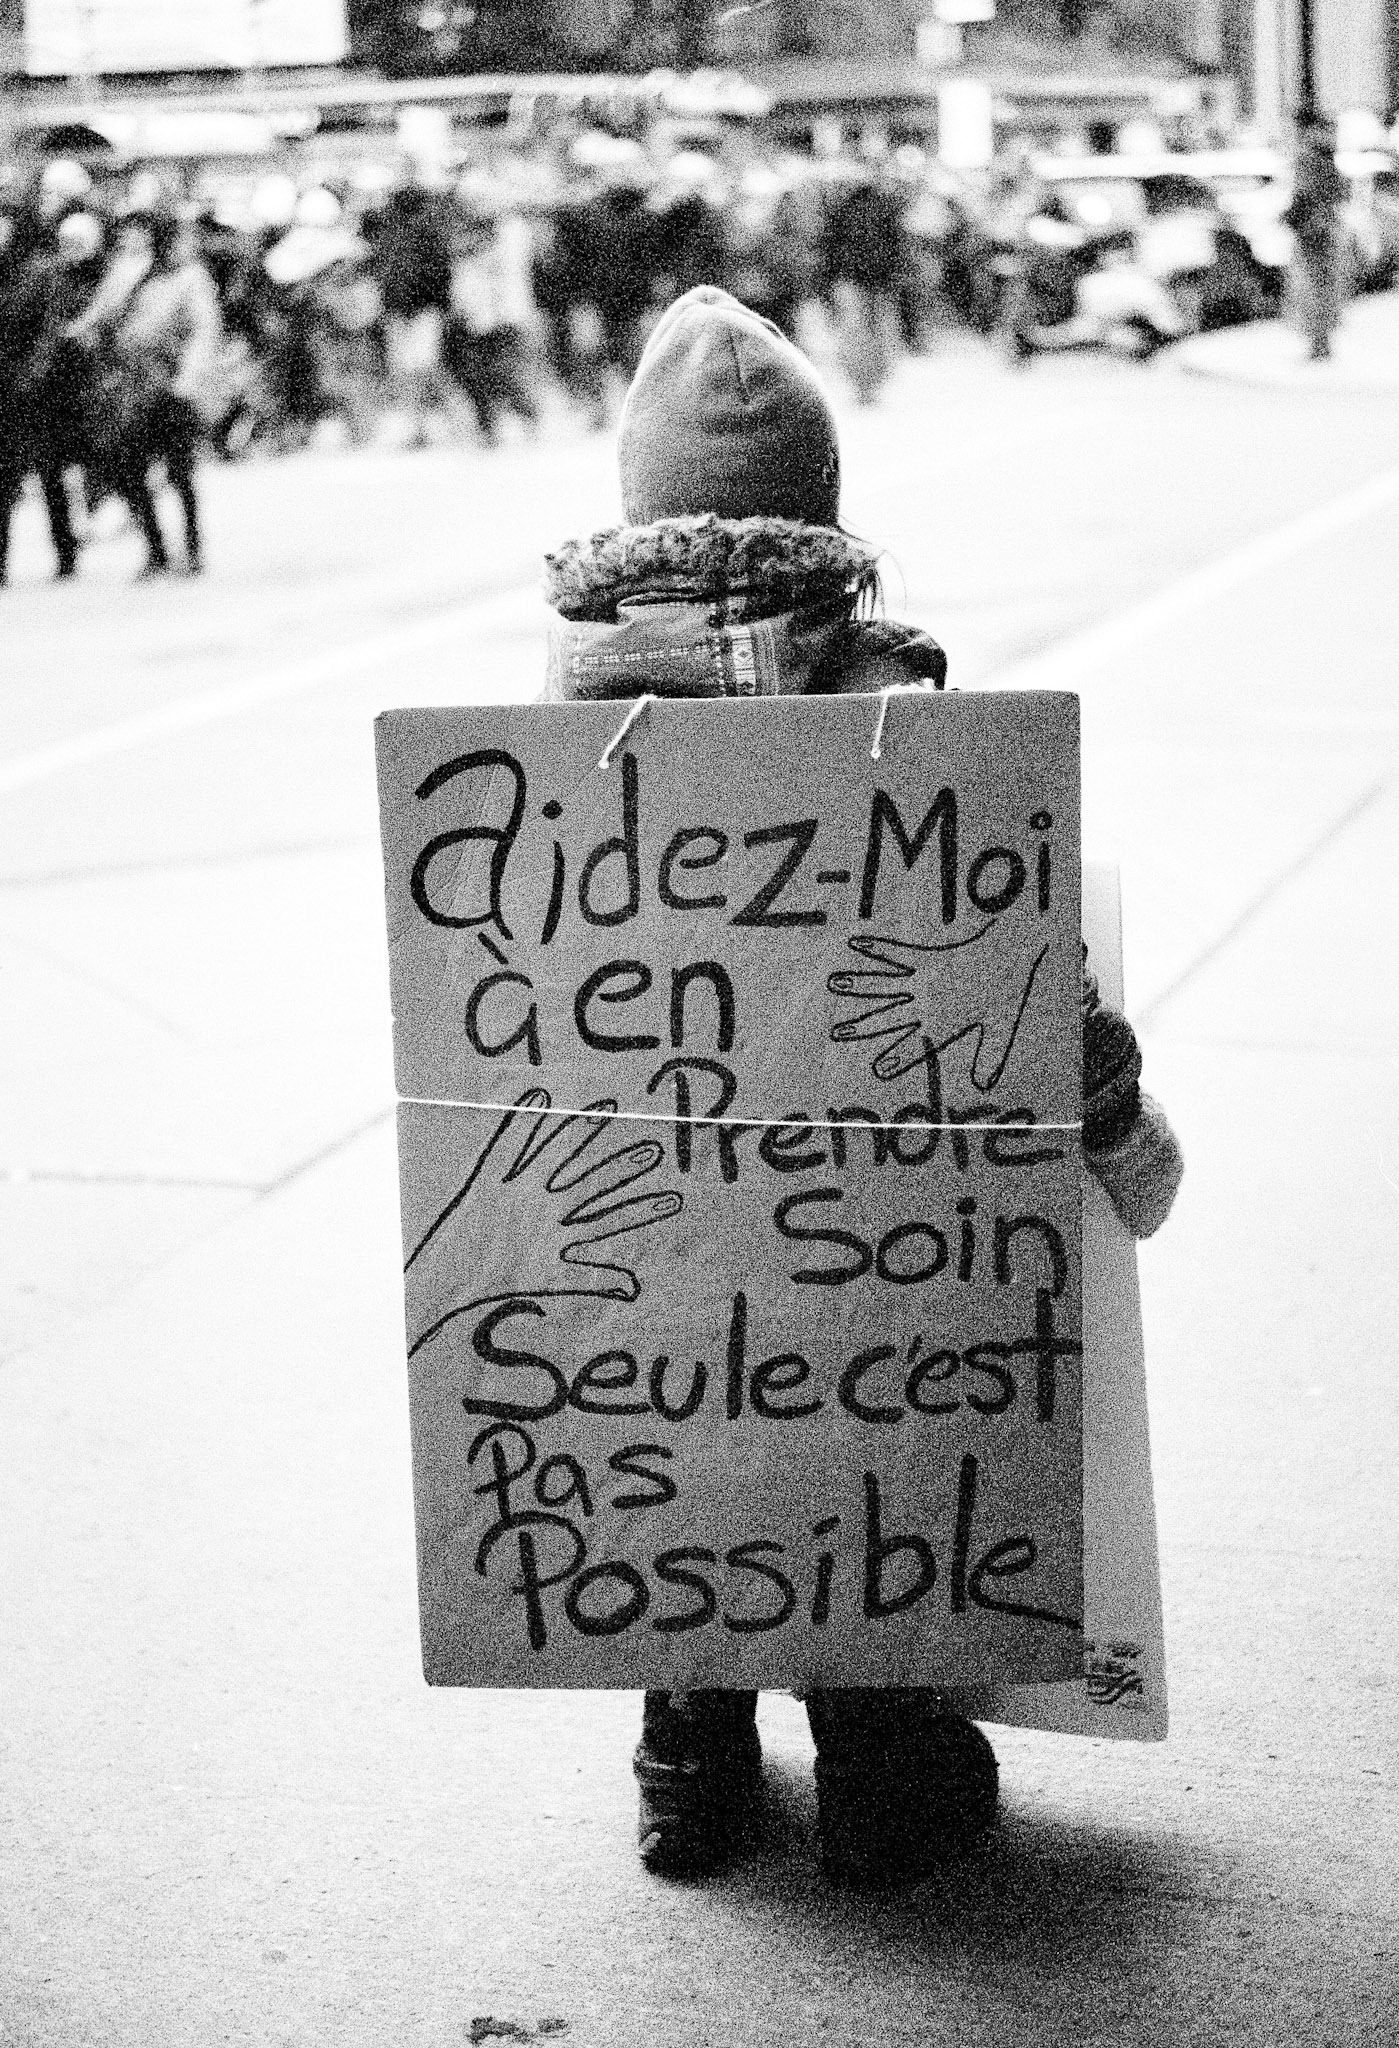 aidez-Moi
à en
Prendre
Soin
Seule c'est
Pas
Possible